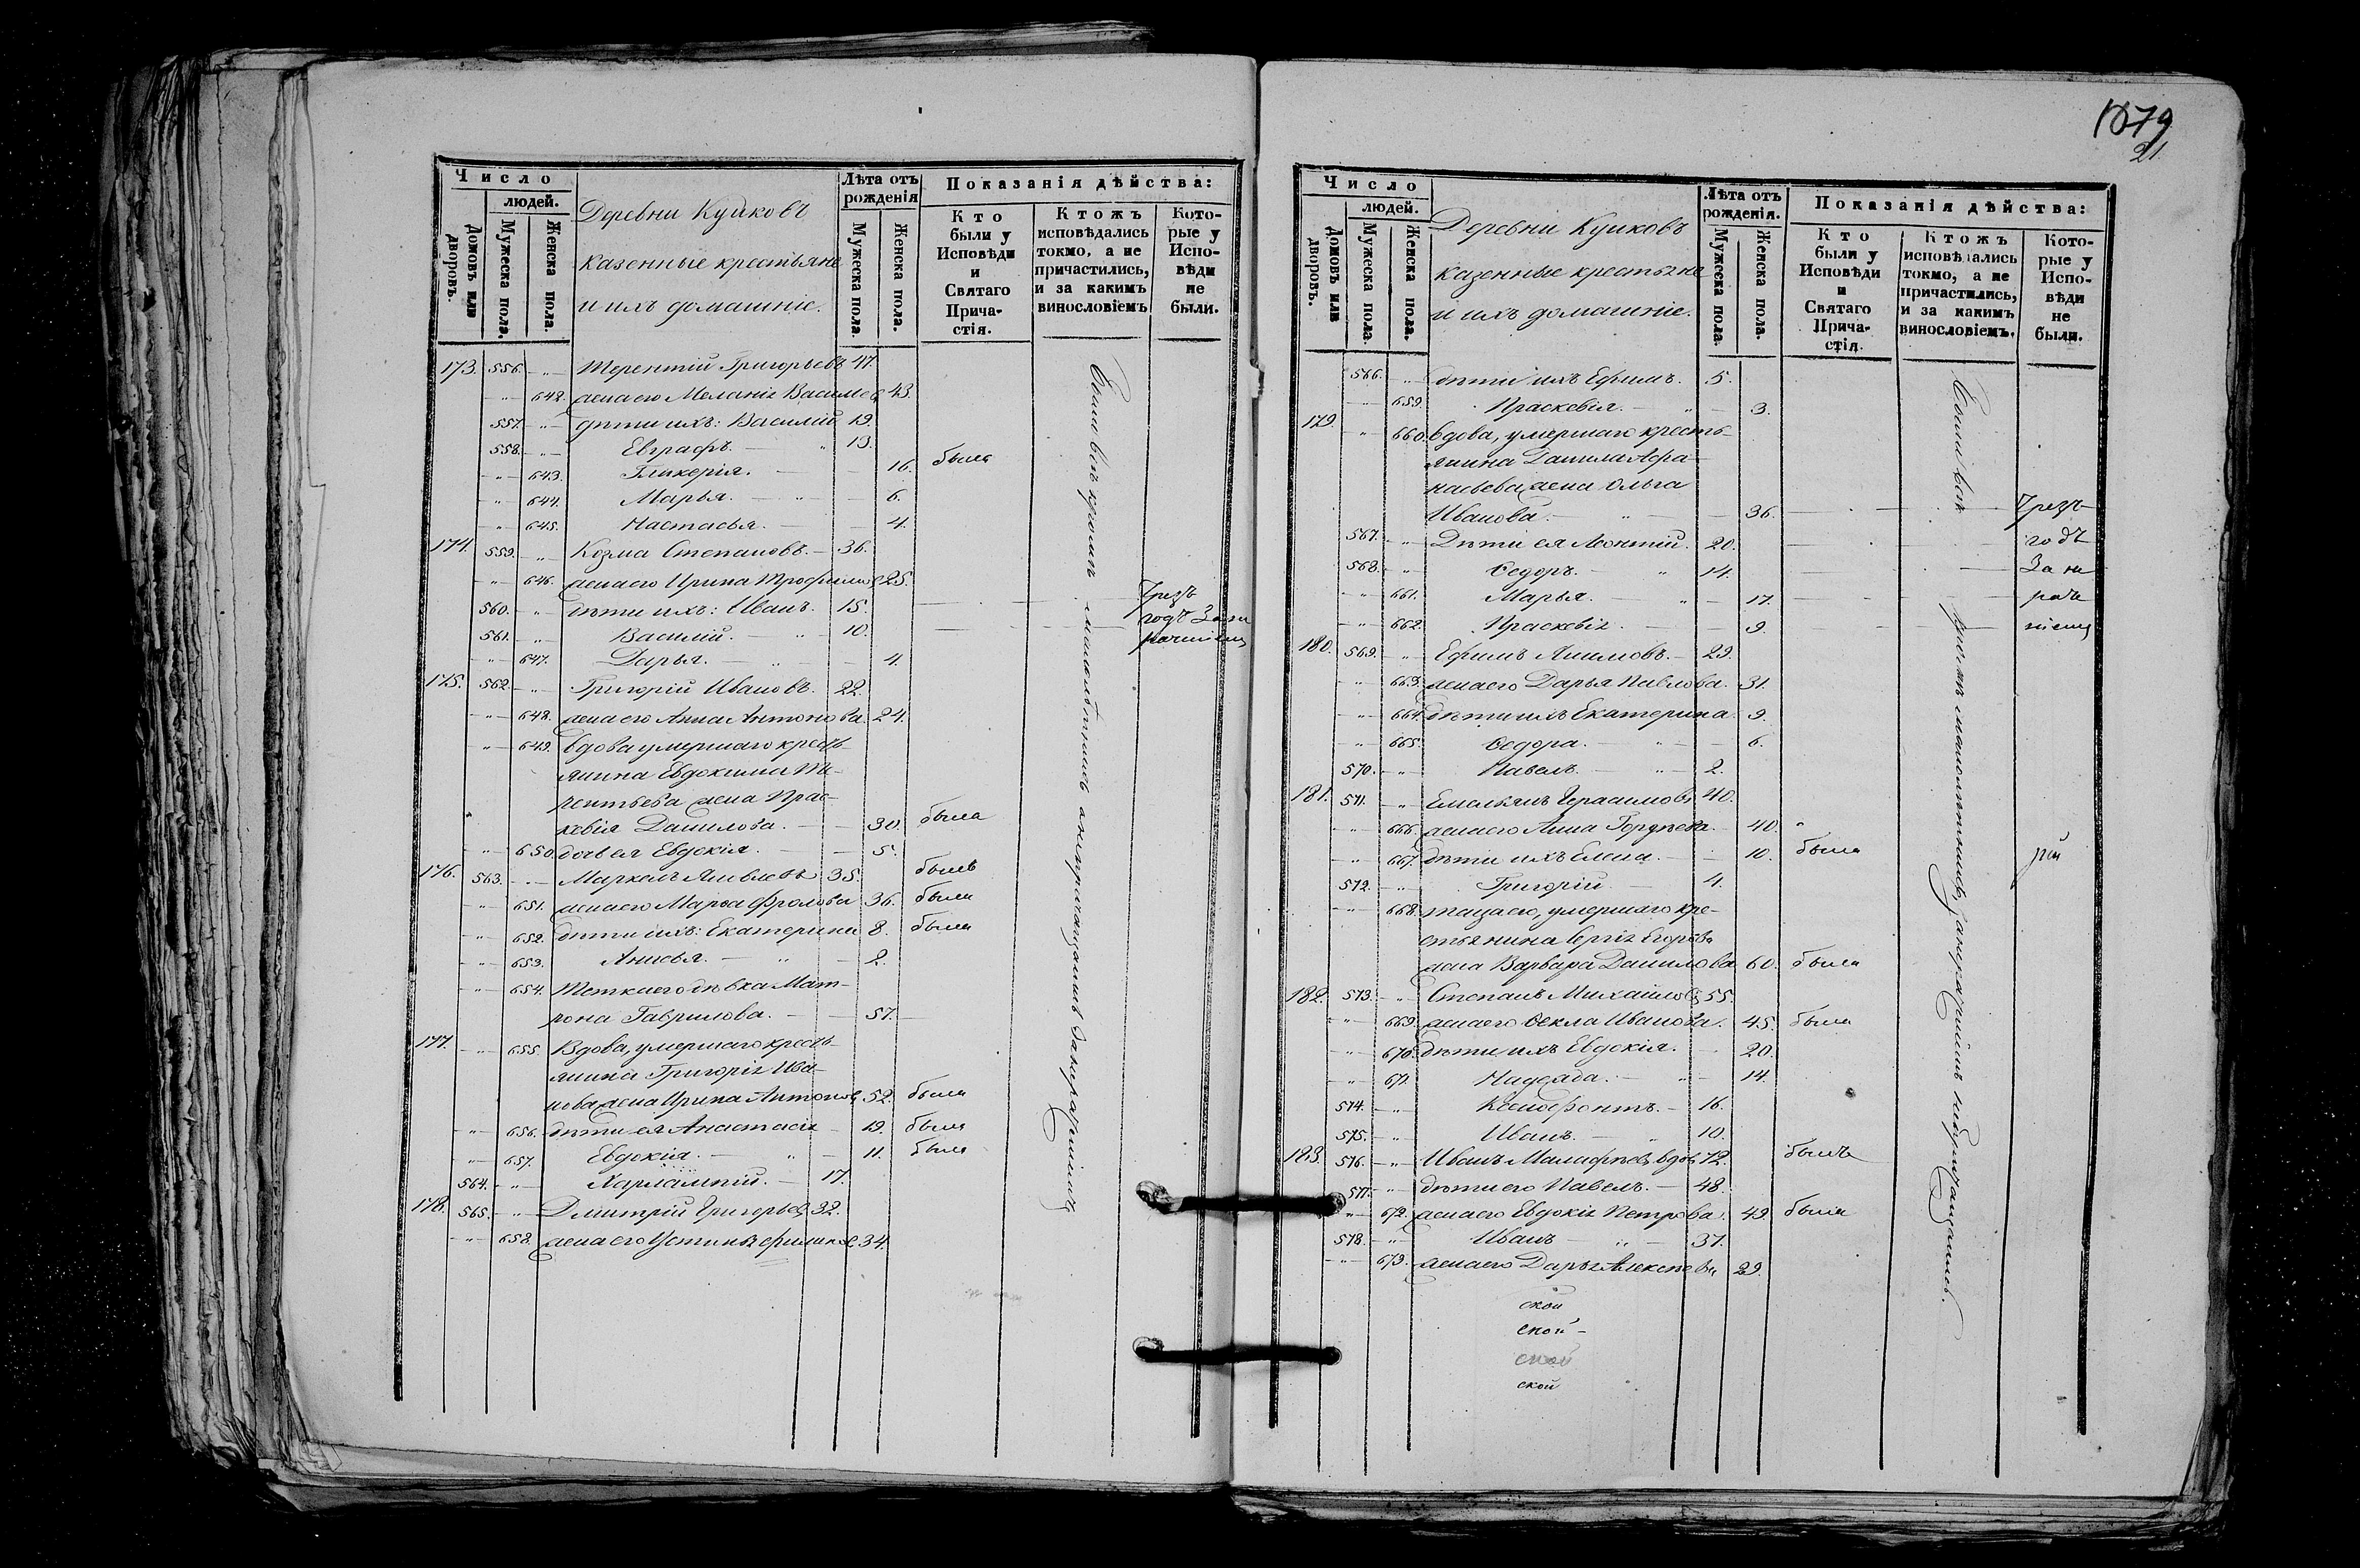 1879
21.
Число
людей.
Домовъ или дворовъ.
Мужеска пола.
Женска пола.
Деревни Куйковъ
казенные крестьяне
и ихъ домашніе.
Лѣта отъ рожденія
Мужеска пола.
Женска пола.
Показанія дѣйства:
Кто были у Исповѣди и Святаго Прича- стія.
Ктожъ исповѣдались токмо, а не причастились, и за какимъ винословіемъ
Кото- рые у Испо- вѣди не были.
173. 556. -„- Терентій Григорьевъ 47.
-„- 642. жена его Меланія Васильев 43.
557. -„- дѣти ихъ: Василій 19.
558. -„- Евграфъ. — „ 13.
-„- 643. Гликерія. — 16. была
-„- 644. Марья. — „ — 6.
-„- 645. Настасья. — 4.
174. 559. -„- Козма Степановъ. — 36.
-„- 646. жена его Ирина Трофимов 25.
560. -„- дѣти ихъ: Иванъ. 15. Чрезъ
561. -„- Василій. — „ 10. годъ За не
раченіемъ
-„- 647. Дарья. — „ — 4.
175. 562. -„- Григорій Ивановъ. 22.
-„- 648. жена его Анна Антонова. 24.
-„- 649. вдова умершаго кресть-
янина Евдокима Те-
рентьева жена Прас-
ковія Данилова. — 30. была
-„- 650. дочь ея Евдокія. — 5.
176. 563. -„- Маркелъ Яковлевъ 35. былъ
-„- 651. жена его Марѳа Фролова 36. была
-„- 652. дѣти ихъ: Екатерина 8. была
-„- 653. Анисья. — „ — 2.
-„- 654. Тетка его дѣвка Мат-
рона Гаврилова. — 57.
177. -„- 655. Вдова, умершаго кресть-
янина Григорія Ива-
нова жена Ирина Антонов 52. была
-„- 656. дѣти ея Анастасія 19. была
-„- 657. Евдокія. — „ — 11. была
564. -„- Харлампій. — 17.
178. 565. -„- Дмитрій Григорьев 32.
-„- 658. жена его Устинья Филипов 34.
Были всѣ кромѣ малолѣтнихъ
Число
людей.
Домовъ или дворовъ.
Мужеска пола.
Женска пола.
Деревни Куйковъ
казенные крестьяне
и ихъ домашніе.
Лѣта отъ рожденія.
Мужеска пола.
Женска пола.
Показанія дѣйства:
Кто были у Исповѣди и Святаго Прича- стія.
Ктожъ исповѣдались токмо, а не причастились, и за какимъ винословіемъ.
Кото- рые у Испо- вѣди не были.
566. -„- дѣти ихъ Ефимъ. 5.
-„- 659. Прасковія. — „ — 3.
179. -„- 660. вдова, умершаго кресть-
янина Данилы Афа-
насьева жена Ольга
Иванова. — „ — 36. Чрезъ
567. -„- Дѣти ея Леонтій. 20. годъ
568. -„- Ѳедоръ. — „ 14. За не
-„- 661. Марья. — „ — 17. раче
-„- 662. Прасковія. — 9. ніемъ
180. 569. -„- Ефимъ Акимовъ. — 29.
-„- 663. жена его Дарья Павлова. 31.
-„- 664. дѣти ихъ Екатерина. 9.
-„- 665. Ѳедора. — „ — 6.
570. -„- Павелъ. — „ — 2.
181. 571. -„- Емельянъ Герасимовъ 40.
-„- 666. жена его Анна Гордѣева. 40.
-„- 667. дѣти ихъ Елена. — 10. была
572. -„- Григорій. — 4.
-„- 668. теща его, умершаго кре-
стьянина Сергія Егорова
жена Варвара Данилова 60. была
182. 573. -„- Степанъ Михайлов 55.
-„- 669. жена его Ѳекла Иванова. 45. была
-„- 670. дѣти ихъ Евдокія. — 20.
-„- 671. Надежда. — „ — 14.
574. -„- Ксенофонтъ. — 16.
575. -„- Иванъ. — „ 10.
183. 576. -„- Иванъ Малафѣев вдов 72. былъ
577. -„- дѣти его Павелъ. — 48.
-„- 672. жена его Евдокія Петрова. 49. была
578. -„- Иванъ — „ — 37.
-„- 673. жена его Дарья Алексѣева 29.
Были всѣ кромѣ малолѣтнихъ
ской
ской -
ской
ской